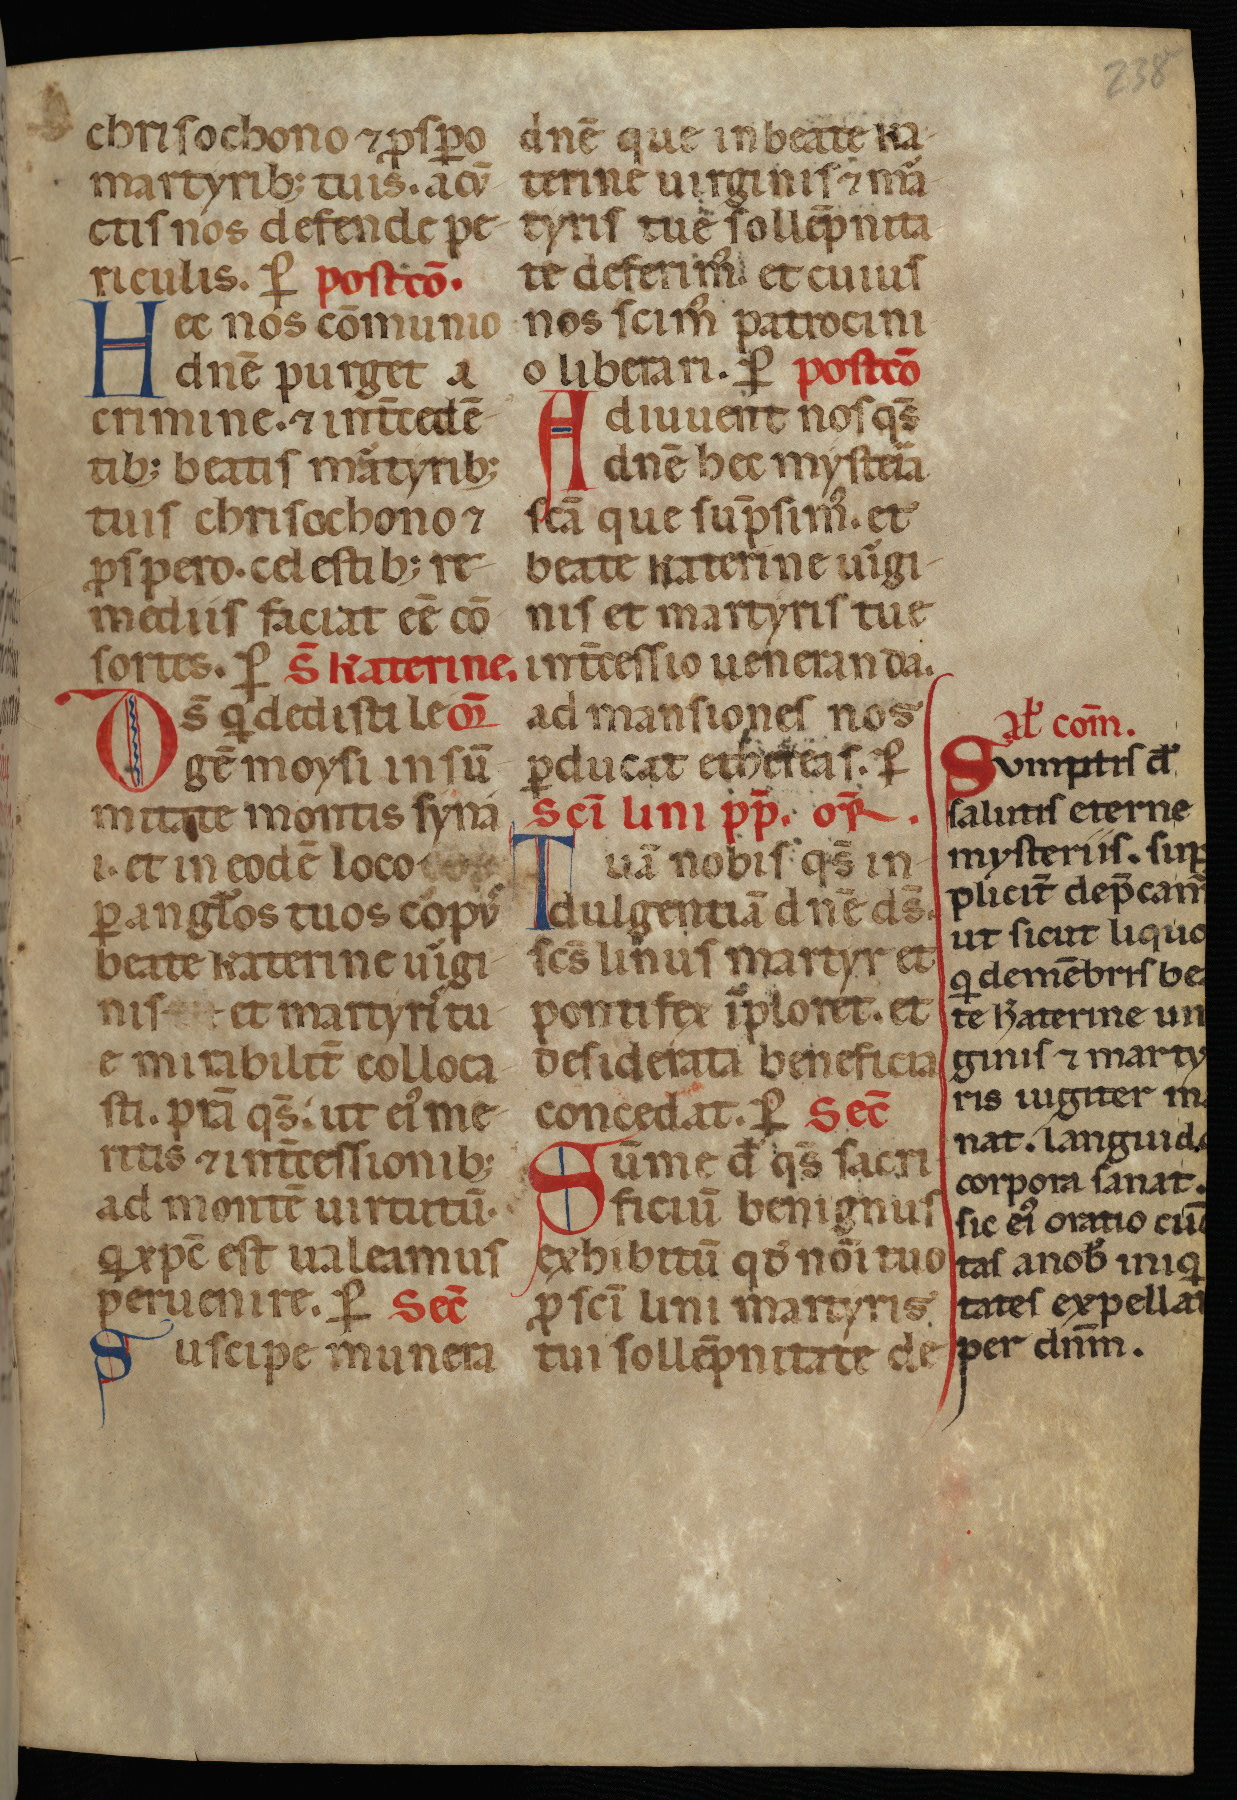 238
chrisochono ⁊ ꝓspo
martyrib; tuis. a cū
ctis nos defende pe
riculis. ꝑ postcō.
Hec nos cōmunio
dnē purget a
crimine. ⁊ int̄cedē
tib; beatis mātyrib;
tuis chrisochono ⁊
ꝓspero. celestib; re
mediis faciat eē cō
sortes. ꝑ S̄ katerine.
Ds̄ q̇ dedisti le oꝝ
gē moysi in sū
mitate montis syna
i. et in eodē loco
ꝑ anglos tuos copꝰ
beate katerine uigi
nis et martyris tu
e mirabilit̄ colloca
sti. pr̄a qs̄. ut eiꝰ me
ritis ⁊ int̄cessionib;
ad montē uirtutū.
q̇ xp̄c est ualeamus
peruenire. ꝑ Sec̄
Suscipe munera
dnē que in beate ka
terine uirginis ⁊ mā
tyris tue sollēpnita
te deferimꝰ. et cuius
nos scimꝰ patrocini
o liberari. ꝑ postcō
Adiuuent nos qs̄
dnē hec mysteia
scā que sūpsimꝰ. et
beate katerine uigi
nis et martyris tue
int̄cessio ueneranda.
ad mansiones nos
ꝑducat ethereas. ꝑ
Scī lini pp̄. or̄.
Tuā nobis qs̄ in
dulgentiā dnē ds̄.
scs̄ linus martyr et
pontifex iploret. et
desiderata beneficia
concedat. ꝑ Sec̄
Sūme d̄ qs̄ sacri
ficiū benignus
exhibitū qd̄ nōi tuo
ꝓ scī lini martyris
tui sollēpnitate de
Al' com̄.
Sumptis d̄
salutis eterne
mysteriis. sup
plicit̄ dep̄cam
ut sicut liquo
q̇ de mēbris be
te katerine uir
ginis ⁊ marty
ris iugiter ma
nat. languid
corpora sanat.
sic eiꝰ oratio cūc
tas a nob̄ iniq̇
tates expellat
per dnm̄.